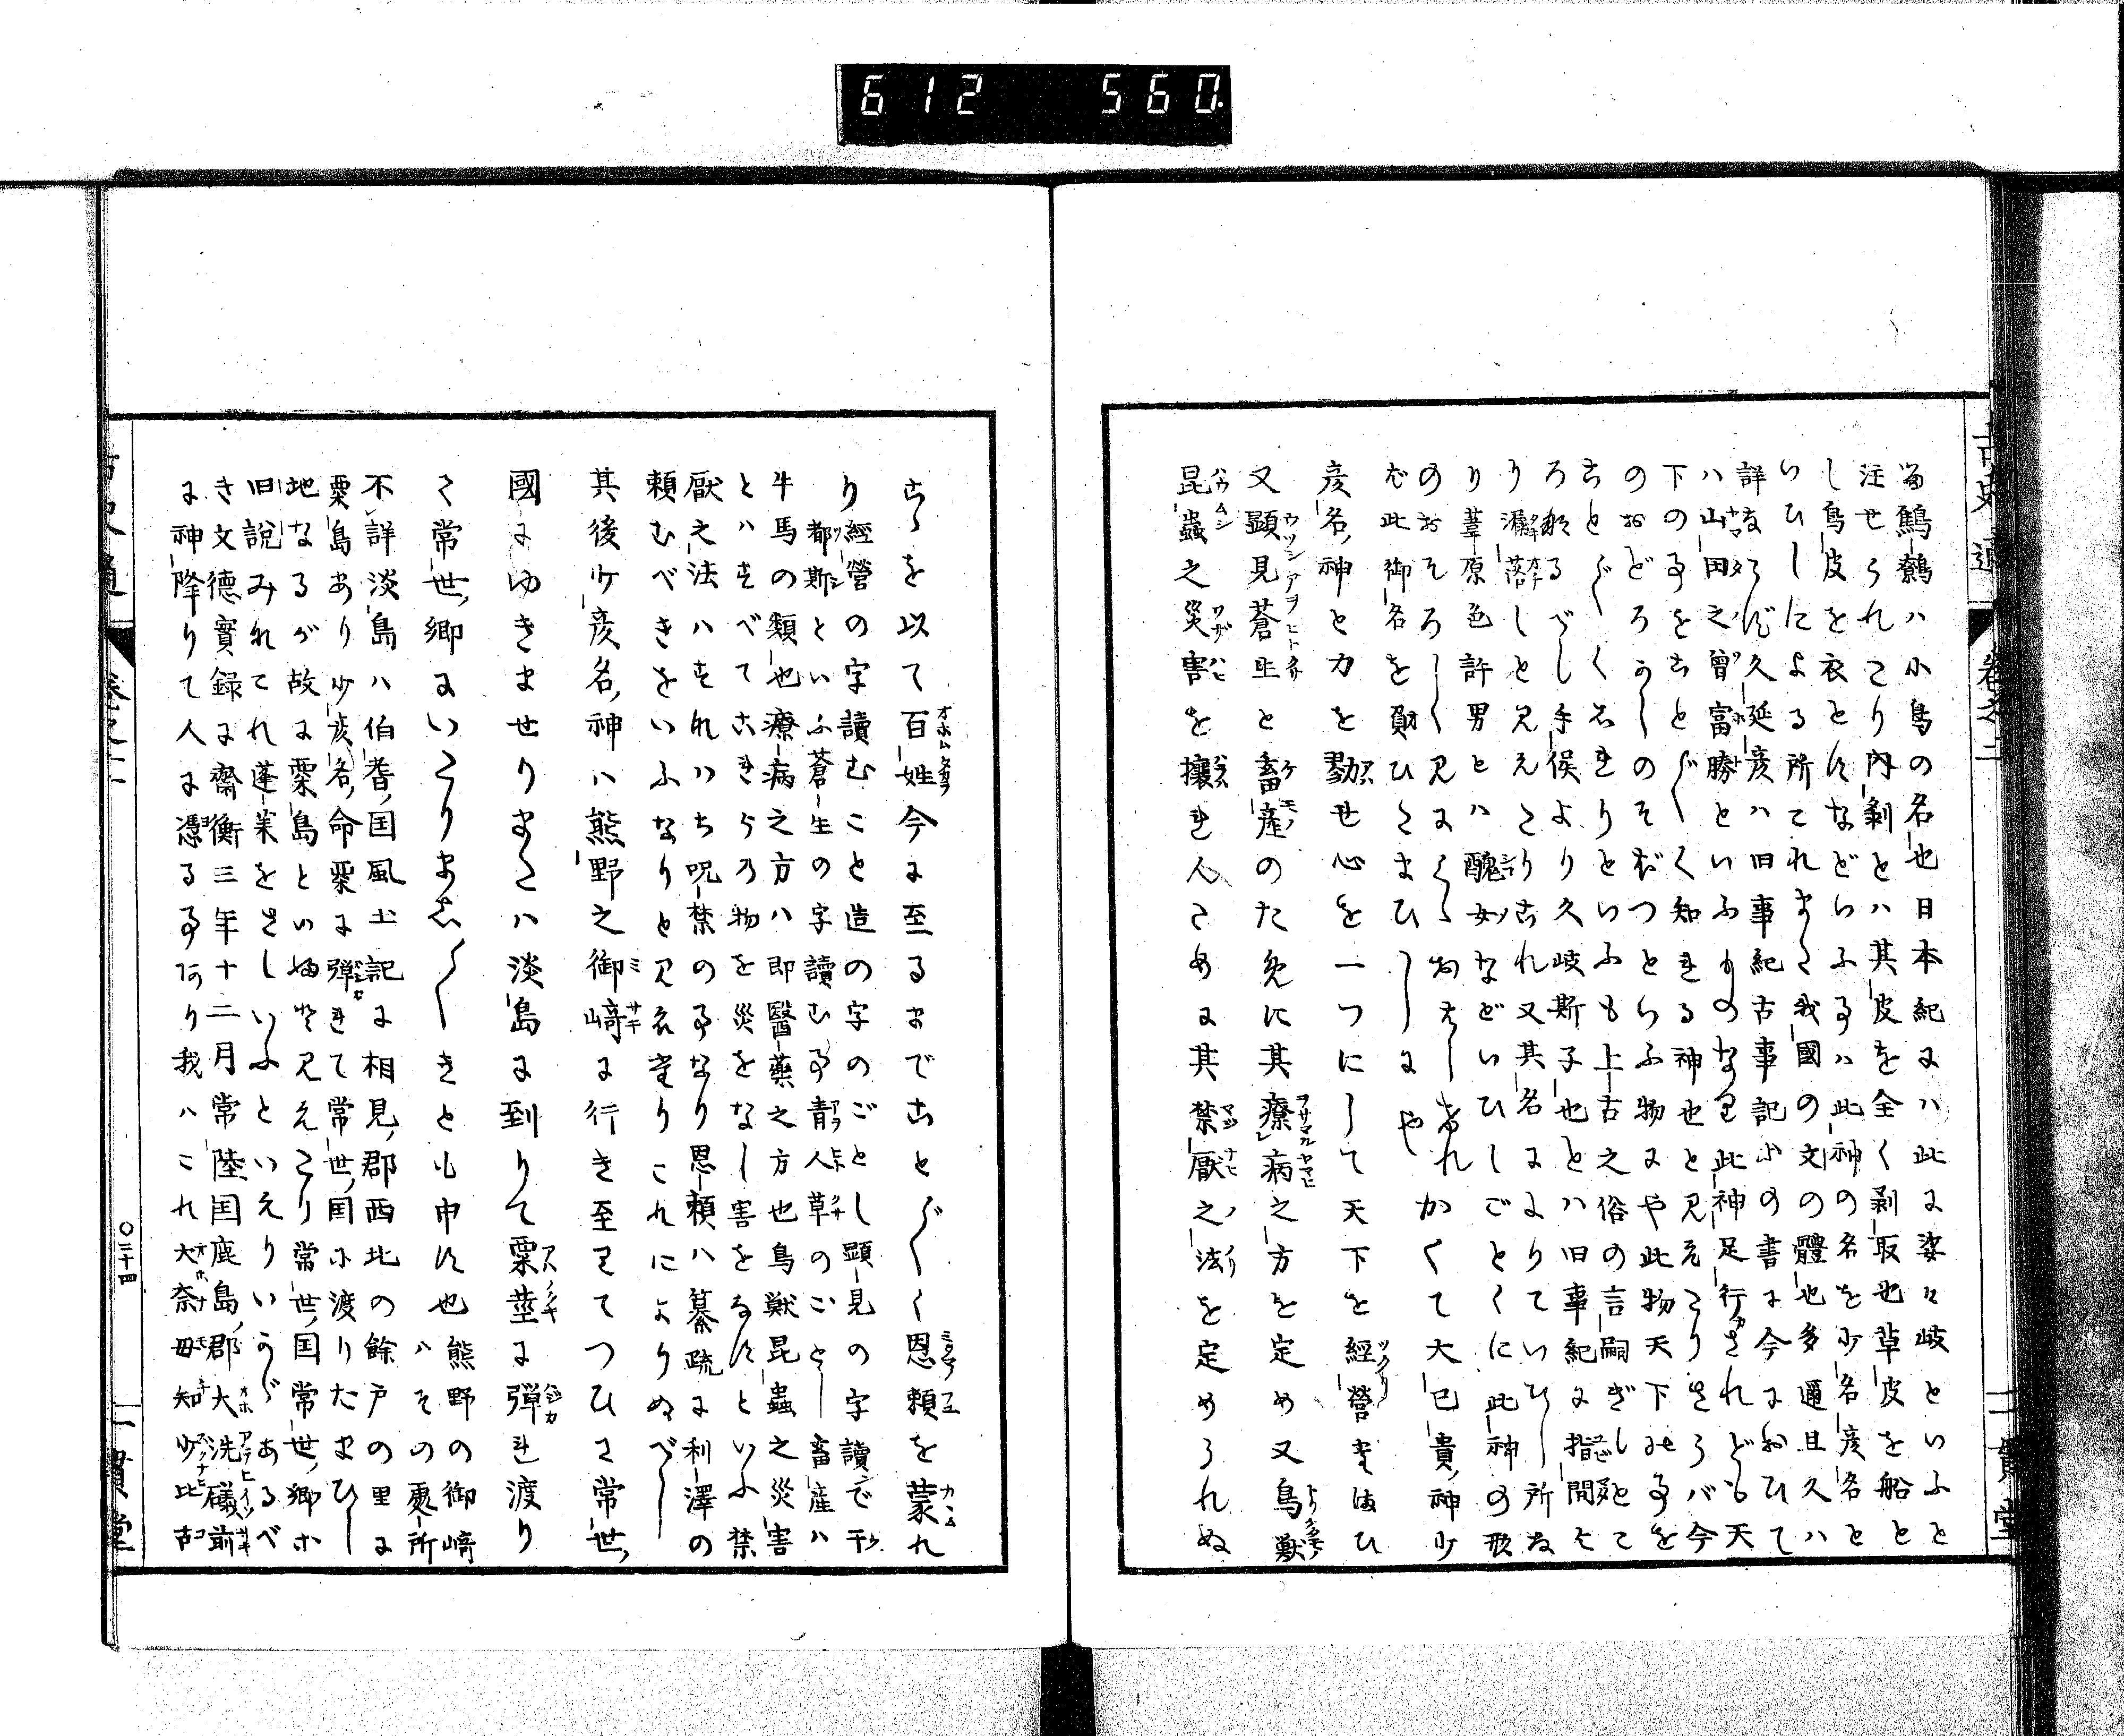 612 560
鷦鷯ハ小鳥の名也日本紀にハ此に娑々岐といふと
注せられたり内剥とハ其皮を全く剥取也草皮を船と
し鳥皮を衣とすなどいふ事ハ此神の名を少名彦名と
いひしによる所てれまた我國の文の體也多邇且久ハ
詳ならず久延彦ハ旧事紀古事記の書に今におひて
ハ山田之曾富勝といふものなり此神足行ざれども天
下の事をことごとく知れる神也と見えたりさらバ今
のおどろかしのそぼつといふ物にや此物天下の事を
ことごとくしれりといふも上古之俗の言嗣ぎしとて
ろなるべし手俣より久岐斯子也とハ旧事紀に指間よ
り漏落しと見えたりこれ又其名によりていひし所な
り葦原色許男とハ醜女などいひしごとくに此神の形
のおそろしく見にくくおはしければかくて大已貴神少
ば此御名を負ひたまひしにや
彦名神と力を勠せ心を一つにして天下を經營たまひ
又顕見蒼生と畜産のために其療病之方を定め又鳥獣
昆蟲之災害を攘き人ために其禁厭之法を定められぬ
こゝを以て百姓今に至るまでことごとく恩頼を蒙れ
り 經營の字讀むこと造の字のごとし顕見の字讀で于
都斯といふ蒼生の字讀む事青人草のごとし畜産ハ
牛馬の類也療病之方ハ即醫藥之方也鳥獣昆蟲之災害
とハすべてこれらの物を災をなし害をなすといふ禁
厭之法ハすなハち呪禁の事なり恩頼ハ纂疏に利澤の
頼むべきをいふなりと見えたりこれによりぬべし
其後少彦名神ハ熊野之御﨑に行き至りてつひに常世
國にゆきませりまたハ淡島に到りて粟莖に弾れ渡り
て常世郷にいたりましゝきとも申す也 熊野の御﨑
ハその處所
不詳淡島ハ伯耆国風土記に相見郡西北の餘戸の里に
粟島あり少彦名命粟に弾きて常世国に渡りたまひし
地なるが故に粟島といふと見えたり常世国常世郷ホ
旧説みれてれ蓬莱をさしいふといえりいうゞあるべ
き文徳實録に齋衡三年十二月常陸国鹿島郡大洗礒前
に神降りて人に憑る事あり我ハこれ大奈毋知少比古
古史通 卷之二
〇三十四
一貫堂